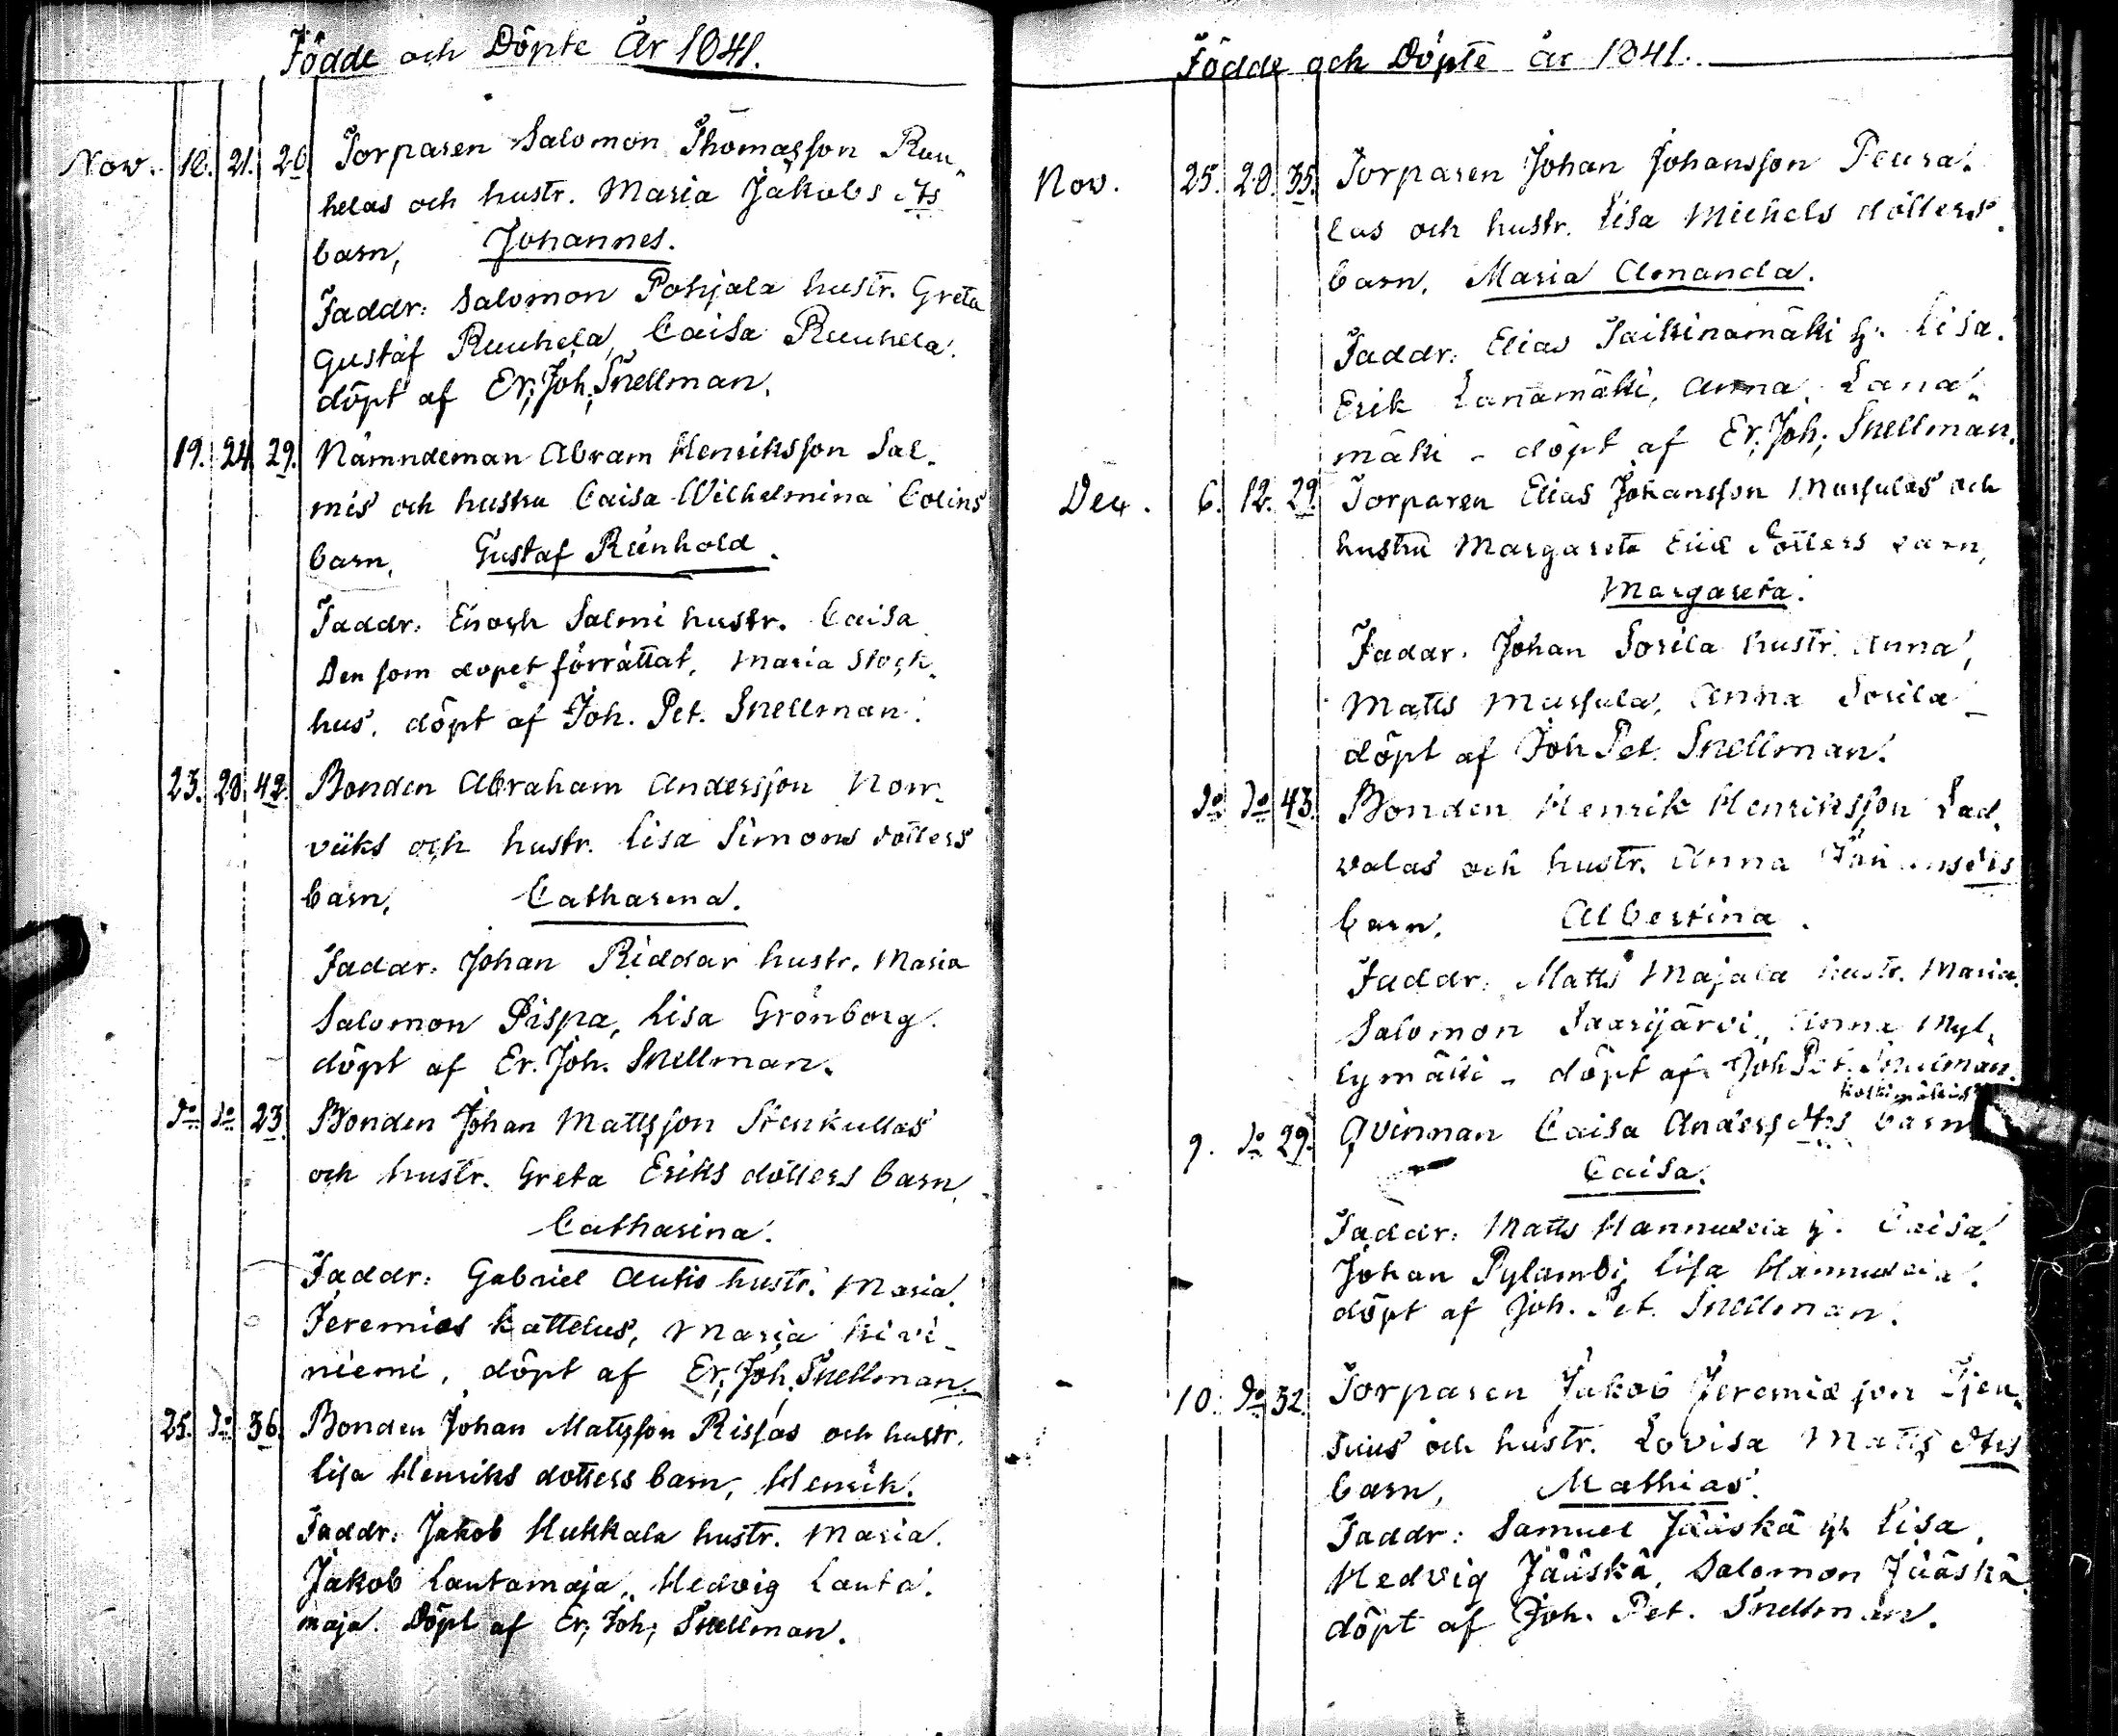 Födde och Döpte År 1841.
Nov. 18. 21. 28. Torparen Salomon Thomasson Ruu-
helas och hustr. Maria Jakobs dtrs
barn, Johannes.
Faddr: Salomon Pohjala hustr. Greta
Gustaf Ruuhela, Caisa Ruuhela.
döpt af Er. Joh. Snellman.
19. 24. 29. Nämndeman Abram Henriksson Sal-
mis och hustru Caisa Wilhelmina Colins
barn, Gustaf Reinhold.
Faddr: Enoch Salmi hustr. Caisa
Den som dopet förrättat, Maria Stock-
hus. döpt af Joh. Pet. Snellman.
23. 28. 42. Bonden Abraham Andersson Norr-
viiks och hustr. Lisa Simons dotters
barn, Catharina.
Faddr: Johan Riddar hustr. Maria
Salomon Pispa, Lisa Grönborg.
döpt af Er. Joh. Snellman.
do do 23. Bonden Johan Mattsson Stenkullas
och hustr. Greta Eriks dotters barn,
Catharina.
Faddr: Gabriel Antis hustr. Maria.
Jeremias Kattelus, Maria Kivi-
niemi, döpt af Er. Joh. Snellman.
25. do 36. Bonden Johan Matsson Rissas och hustr.
Lisa Henriks dotters barn, Henrik.
Faddr: Jakob Hukkala hustr. Maria.
Jakob Lautamaja, Hedvig Lauta-
maja. Döpt af Er. Joh. Snellman.
Födde och Döpte år 1841.
Nov. 25. 28. 35. Torparen Johan Johansson Peura-
las och hustr. Lisa Michels dotters
barn, Maria Amanda.
Faddr: Elias Paikinamäki h. Lisa.
Erik Lanamäki, Anna Lana-
mäki - döpt af Er. Joh. Snellman.
Dec. 6. 12. 29. Torparen Elias Johansson Massulas och
hustru Margareta Eliæ dotters barn,
Margareta.
Faddr. Johan Sorila hustr. Anna,
Matts Massula, Anna Sorila -
döpt af Joh Pet. Snellman.
do do 43. Bonden Henrik Henriksson Lad-
valas och hustr. Anna dtrs
barn, Albertina.
Faddr: Matts Majala hustr. Maria.
Salomon Saarijärvi, Anna Myl-
lymäki - döpt af Joh Pet. Snellman.
9. do 29. Qvinnan Caisa Anders dtrs barn
Caisa.
Faddr: Matts Hannuksela h. Caisa.
Johan Pylambi, Lisa Hannuksela.
döpt af Joh. Pet. Snellman.
10. do 32. Torparen Jakob Jeremiæ son
och hustr. Lovisa Matts dtrs
barn, Mathias.
Faddr: Samuel Jääskä h. Lisa,
Hedvig Jääskä, Salomon Jääskä.
döpt af Joh. Pet. Snellman.